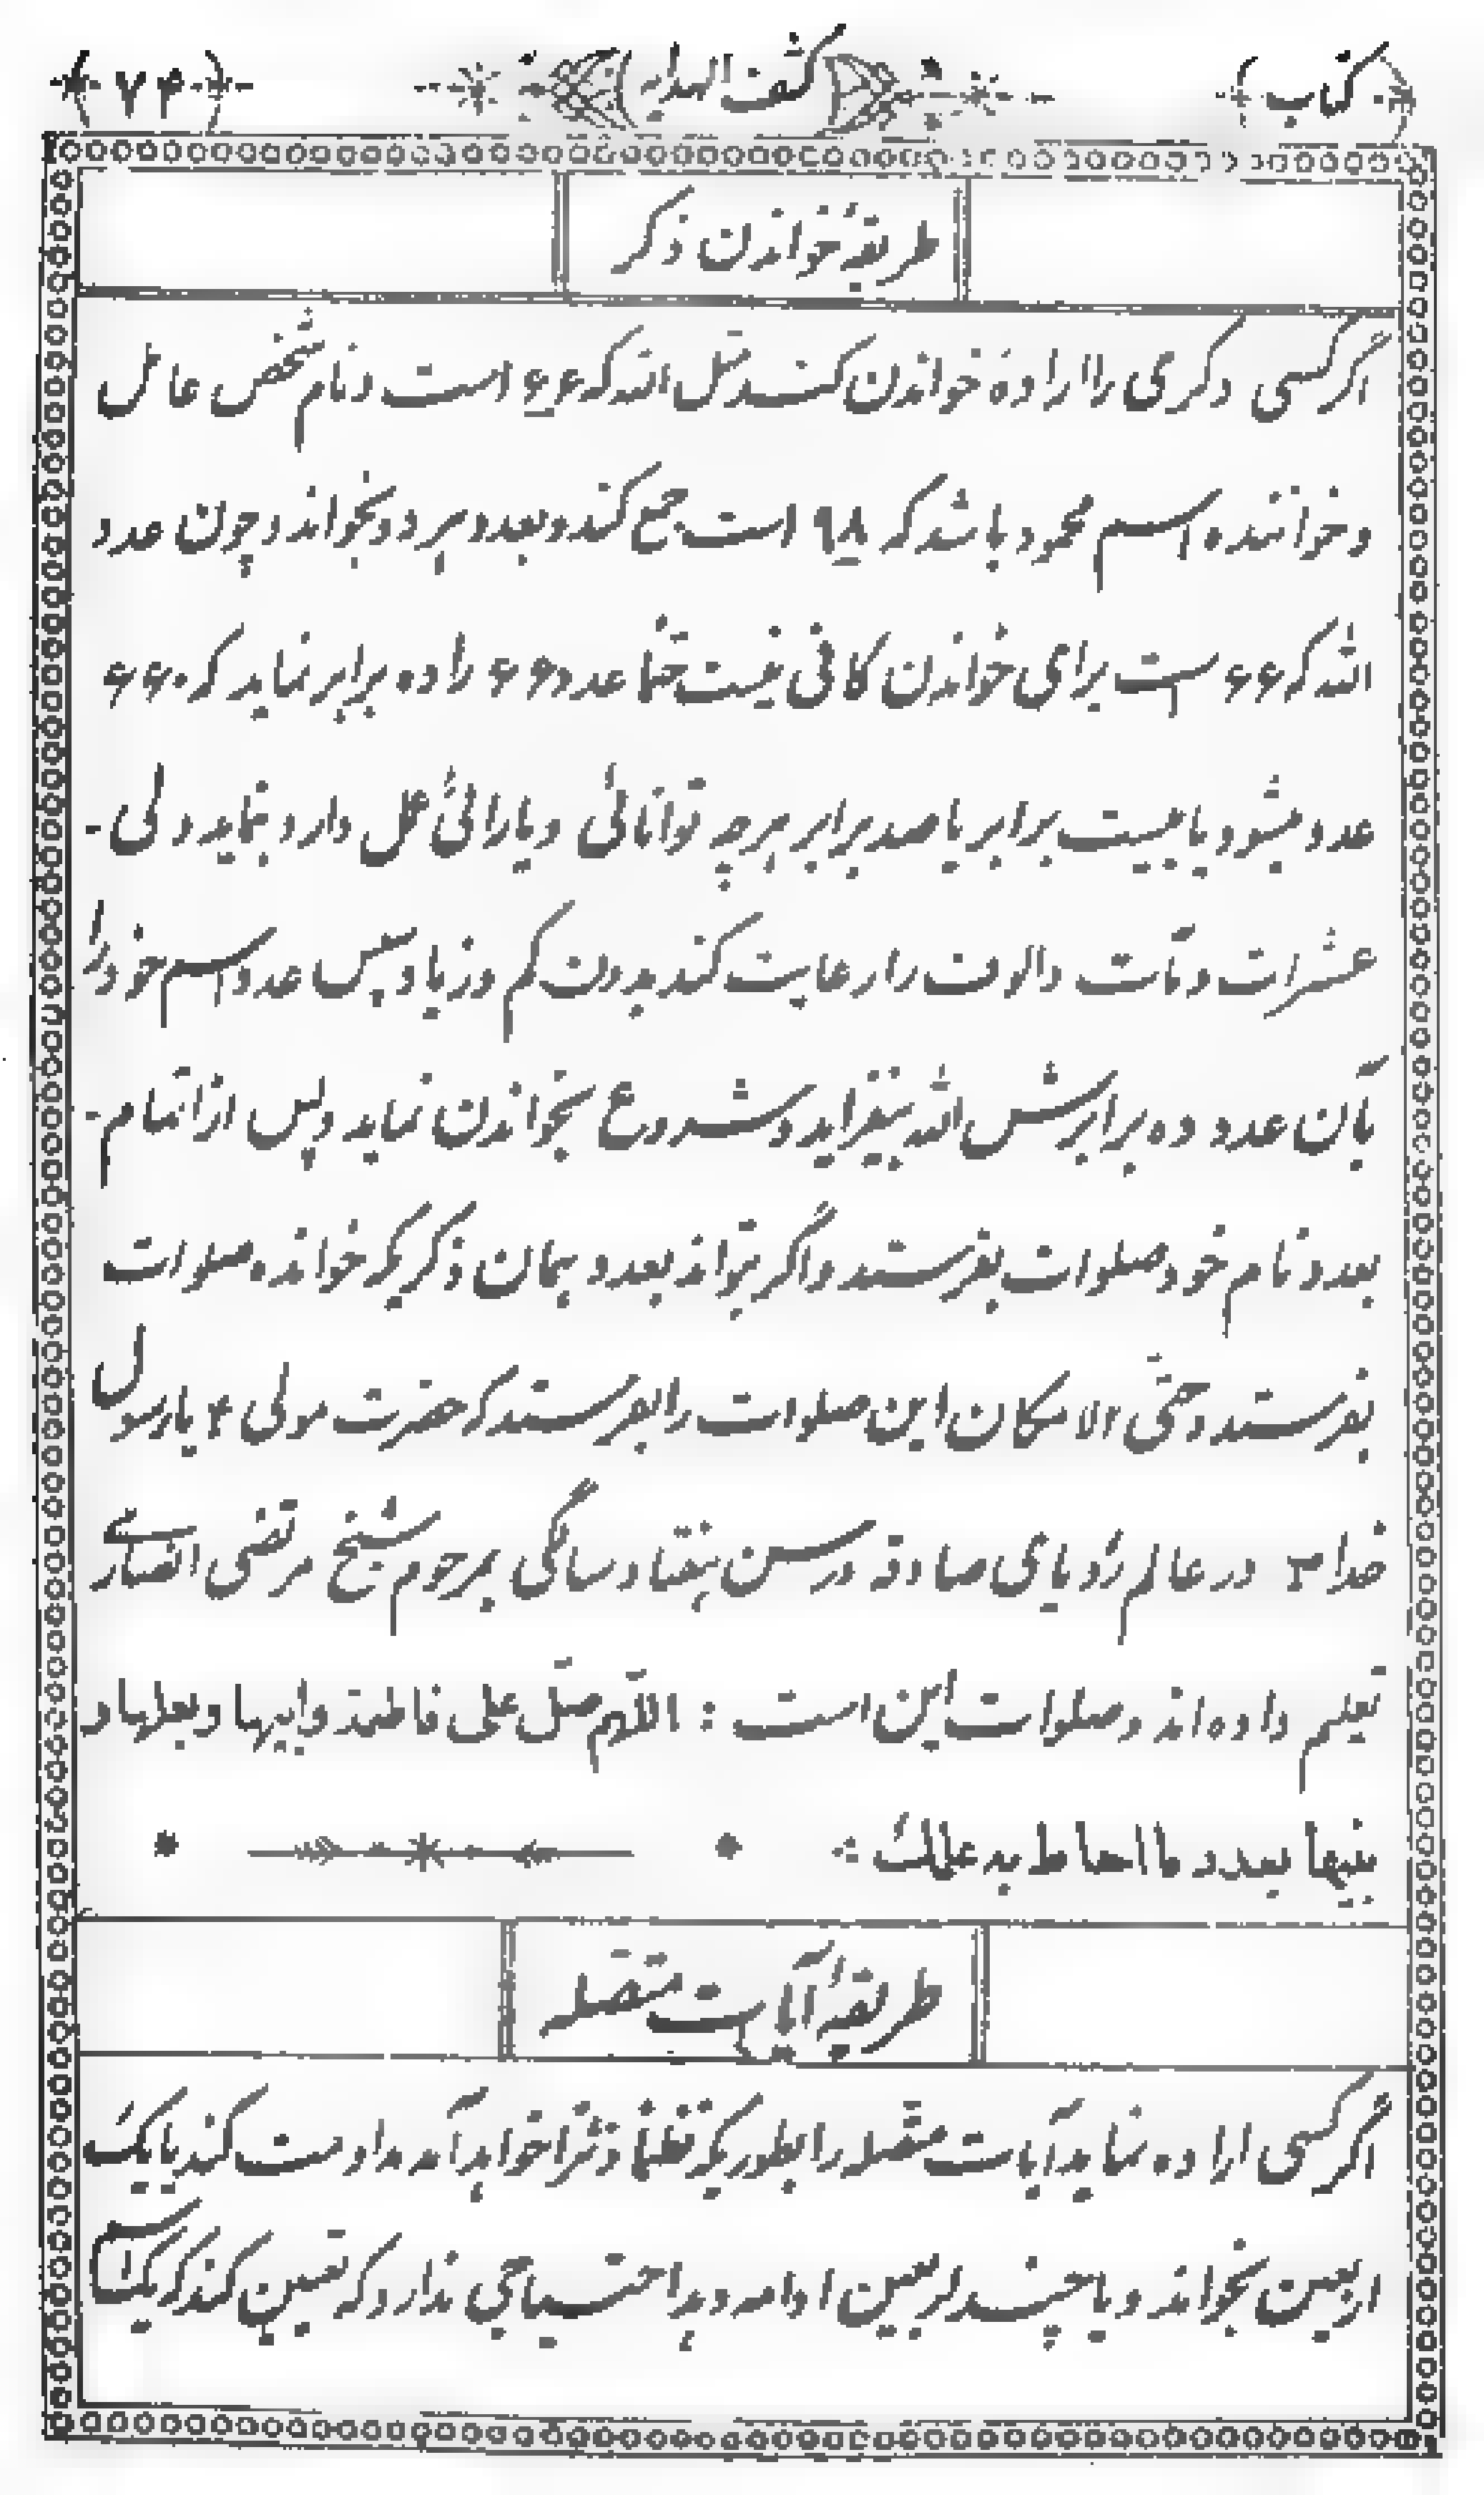 کتاب کشف الهدایه ۷۴
طریقهٔ خواندن ذکر
اگر کسی ذکری را اراده خواندن کند مثل الله که ۶۶ است و نام شخص عامل
و خواننده اسم محمود باشد که ۹۸ است جمع کند و بعدد هر دو بخواند و چون عدد
الله که ۶۶ است برای خواندن کافی نیست حتما عدد ۶۶ را ده برابر نماید که ۶۶۰
عدد میشود یا بیست برابر یا صد برابر هر چه توانائی و یارائی عمل دارد بنماید ولی -
عشرات و مآت والوف را رعایت کند بدون کم و زیاد سپس عدد اسم خود را
بآن عدد ده برابرش الله بیفزاید و شروع بخواندن نماید و پس از اتمام -
بعدد نام خود صلوات بفرستد و اگر بتواند بعدد همان ذکریکه خوانده صلوات
بفرستد و حتی الامکان این صلوات را بفرستد که حضرت مولی ۴ یا رسول
خدا ۳ در عالم رؤیای صادقه در سن هفتاد سالگی بمرحوم شیخ مرتضی انصاری
تعلیم داده‌اند و صلوات این است : اللّهم صلّ علی فاطمة وابیها وبعلها و
بنیها بعدد ما احاط به علمک
طریقهٔ آیات متصله
اگر کسی اراده نماید آیات متصله را بطوریکه نظما و نثرا خواهد آمد مداومت کند یا یک
اربعین بخواند و یا چند اربعین ادامه دهد احتیاجی ندارد که تعیین کند که یکسال